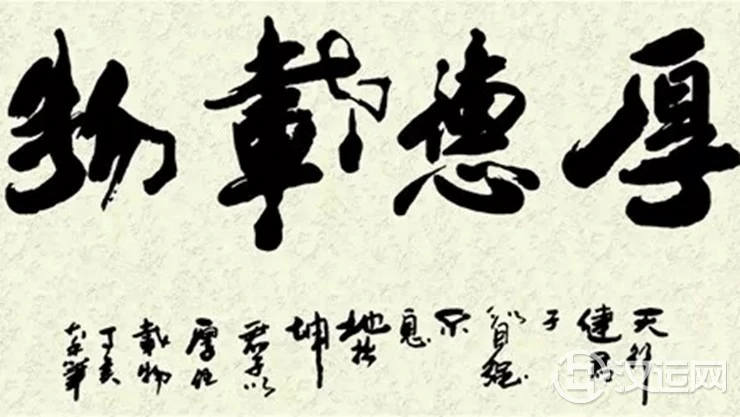 厚德載物
天行
健君
子
以自强
不
息
地势
坤
君子以
厚德
載物
丁亥
汉运网